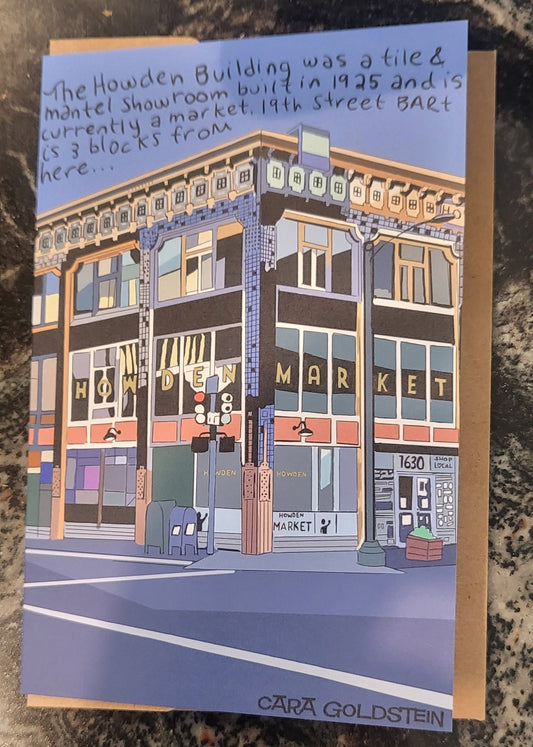 The Howden Building was a tile &
mantel showroom built in 1925 and is
currently a market. 19th Street BART
is 3 blocks from
here...
HOWDEN MARKET
HOWDEN HOWDEN
1630 SHOP
LOCAL
HOWDEN
MARKET
CARA GOLDSTEIN